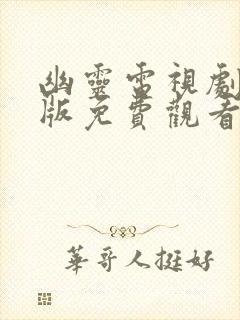 幽靈電視劇
版免費觀看
華哥人挺好